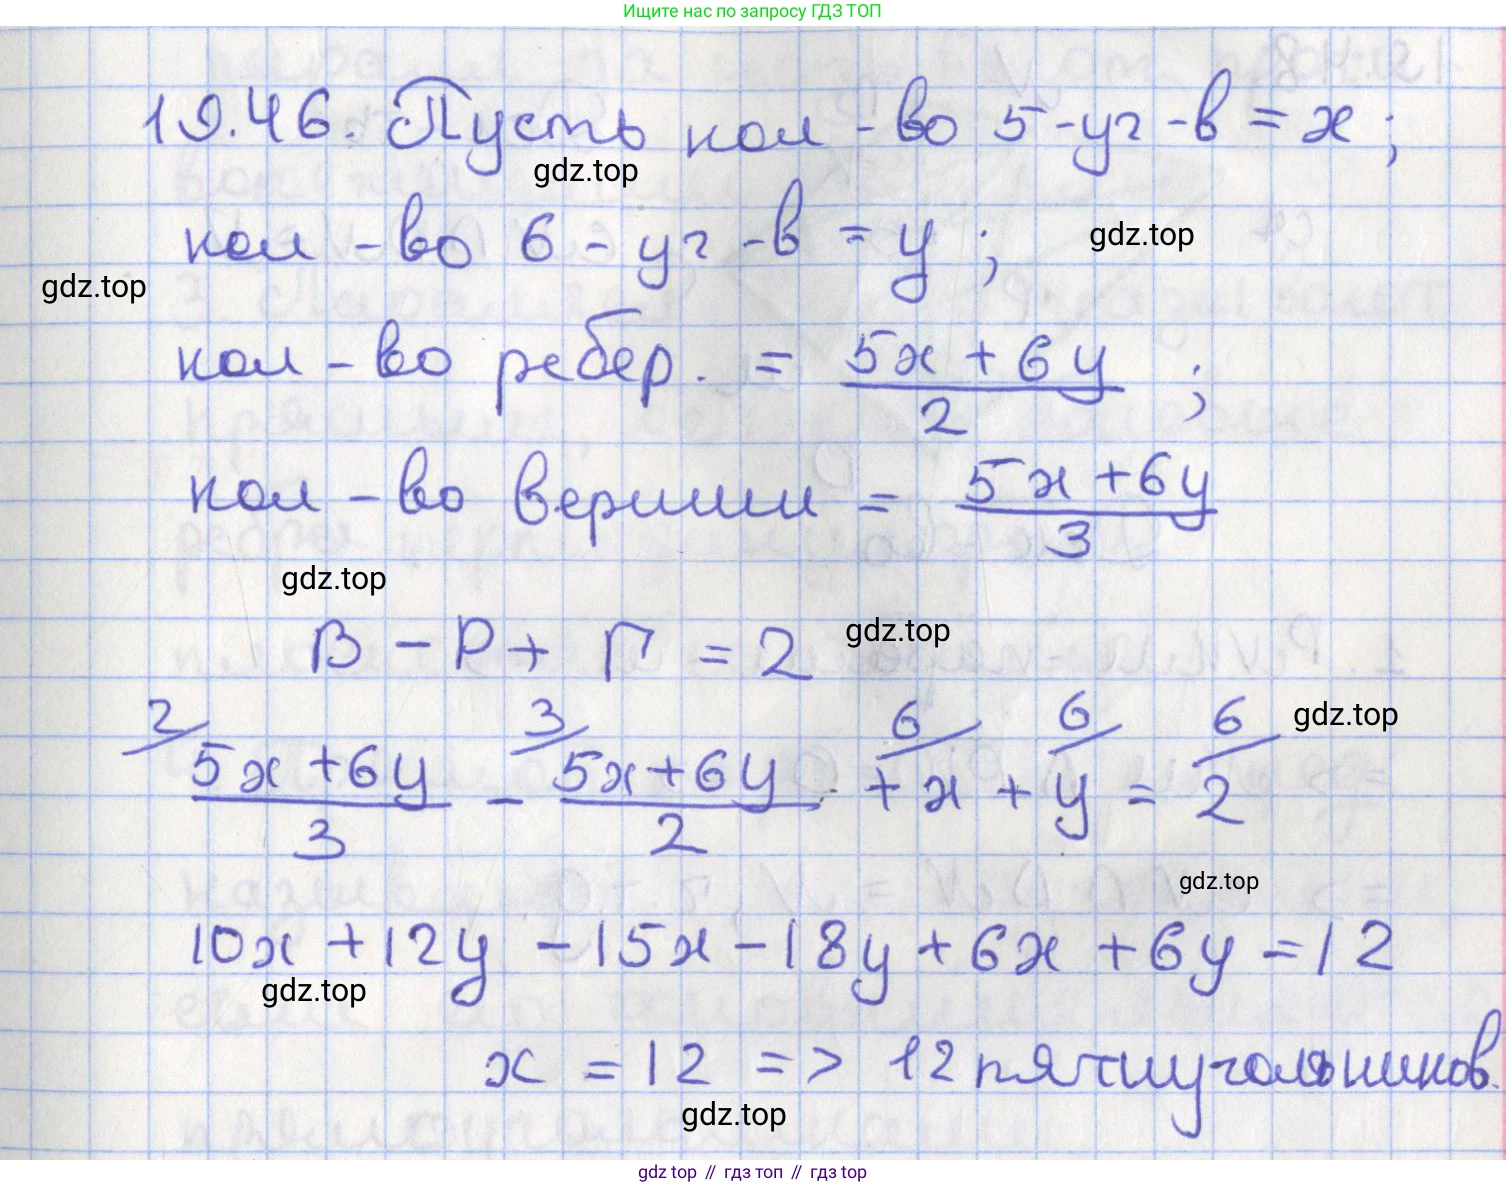 Ищите нас по запросу ГДЗ ТОП
19.46. Пусть кол-во 5-уг-в = x;
gdz.top
кол-во 6-уг-в = y;
gdz.top
gdz.top
кол-во ребер. = (5x + 6y)/2;
кол-во вершин = (5x + 6y)/3
gdz.top
В - Р + Г = 2
gdz.top
2/ 3/ 6/ 6/ 6/
gdz.top
(5x + 6y)/3 - (5x + 6y)/2 + x + y = 2
gdz.top
10x + 12y - 15x - 18y + 6x + 6y = 12
gdz.top
x = 12 => 12 пятиугольников.
gdz.top
gdz top // гдз топ // гдз top